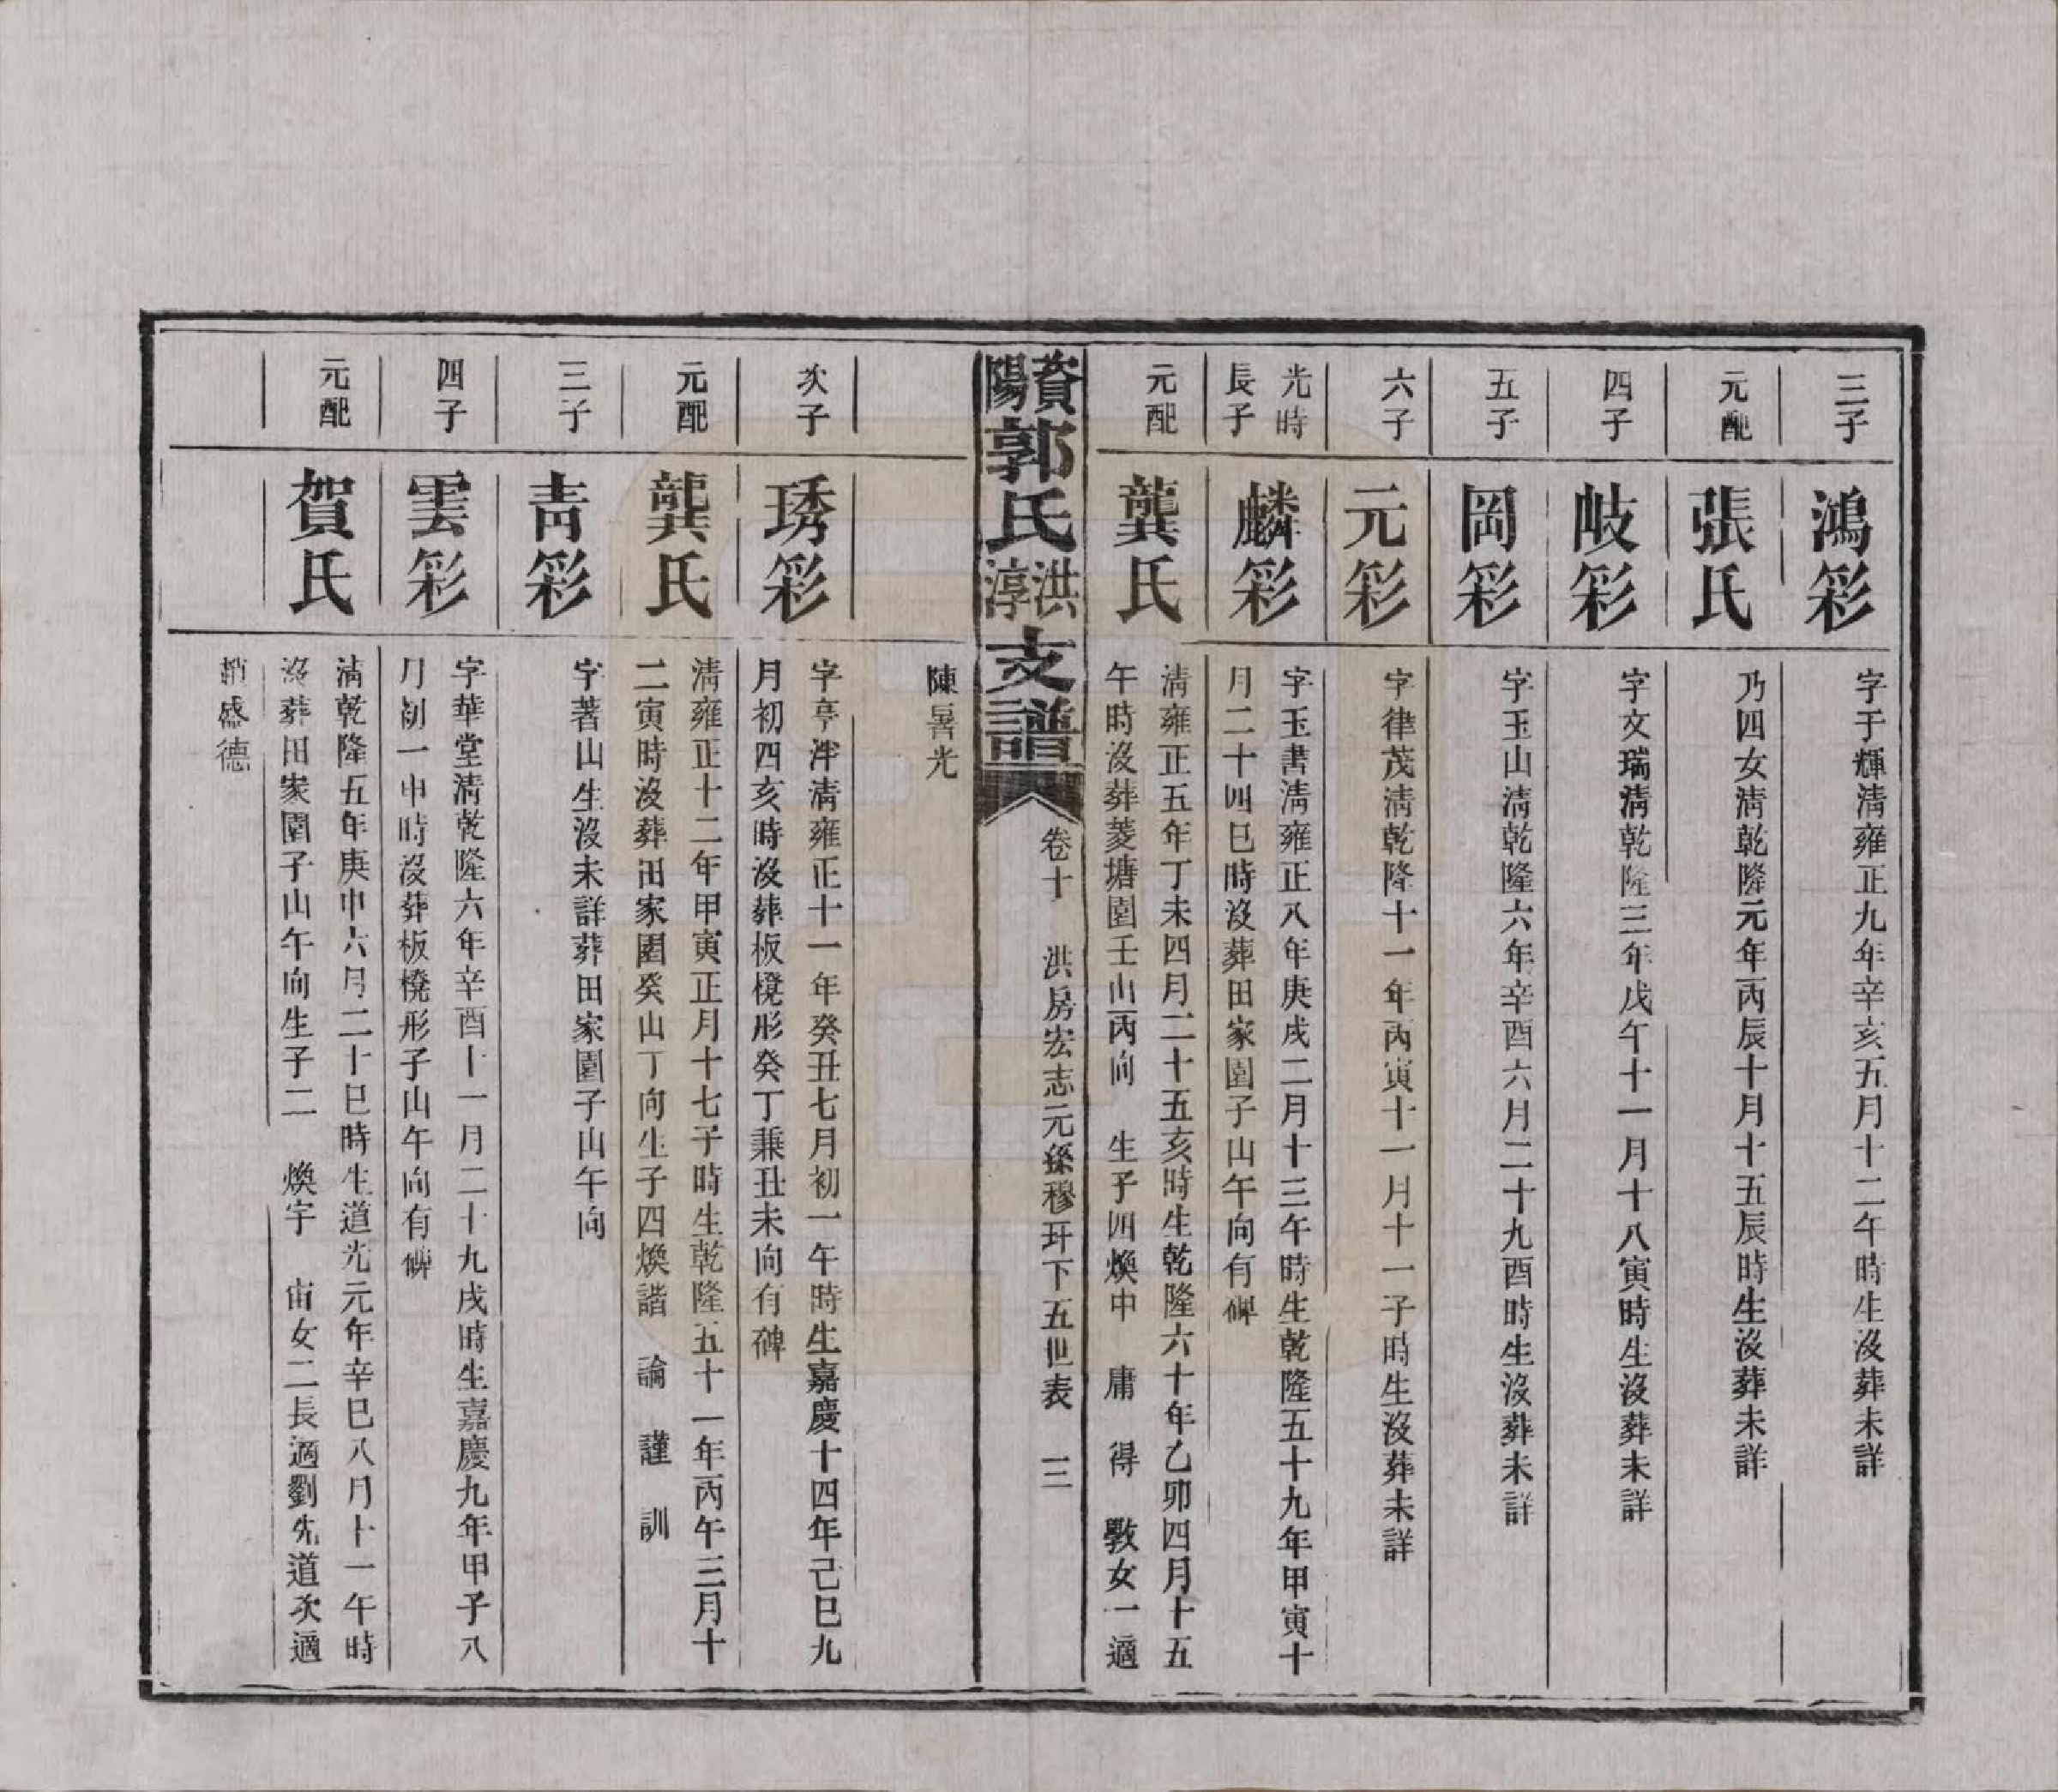 三子
鴻彩
字于輝淸雍正九年辛亥五月十二午時生沒葬未詳
元配
張氏
乃四女淸乾隆元年丙辰十月十五辰時生沒葬未詳
四子
岐彩
字文瑞淸乾隆三年戊午十一月十八寅時生沒葬未詳
五子
岡彩
字玉山淸乾隆六年辛酉六月二十九酉時生沒葬未詳
六子
元彩
字律茂淸乾隆十一年丙寅十一月十一子時生沒葬未詳
光時
長子
麟彩
字玉書淸雍正八年庚戌二月十三午時生乾隆五十九年甲寅十
月二十四巳時沒葬田家園子山午向有碑
元配
龔氏
淸雍正五年丁未四月二十五亥時生乾隆六十年乙卯四月十五
午時沒葬菱塘園壬山丙向 生子四煥中 庸 得 斅女一適
資陽郭氏洪淳支譜
卷十 洪房宏志元孫穆玕下五世表 三
陳暑光
次子
琇彩
字亭泮淸雍正十一年癸丑七月初一午時生嘉慶十四年己巳九
月初四亥時沒葬板櫈形癸丁兼丑未向有碑
元配
龔氏
淸雍正十二年甲寅正月十七子時生乾隆五十一年丙午三月十
二寅時沒葬田家園癸山丁向生子四煥諧 論 謹 訓
三子
靑彩
字著山生沒未詳葬田家園子山午向
四子
雲彩
字華堂淸乾隆六年辛酉十一月二十九戌時生嘉慶九年甲子八
月初一申時沒葬板櫈形子山午向有碑
元配
賀氏
淸乾隆五年庚申六月二十巳時生道光元年辛巳八月十一午時
沒葬田家園子山午向生子二 煥宇 宙女二長適劉先道次適
趙盛德